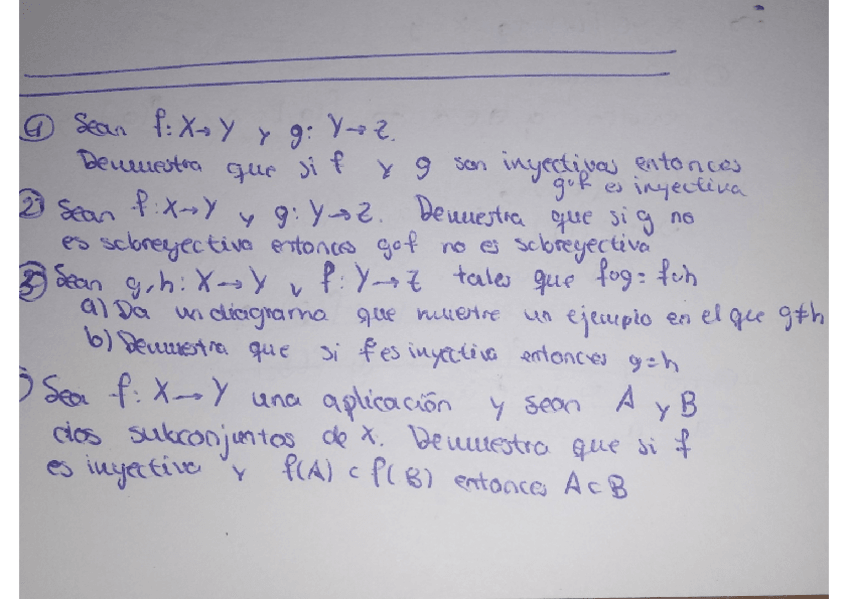 ① Sean f: X→Y y g: Y→Z.
Demuestra que si f y g son inyectivas entonces
g∘f es inyectiva
② Sean f: X→Y y g: Y→Z. Demuestra que si g no
es sobreyectiva entonces g∘f no es sobreyectiva
③ Sean g, h: X→Y y f: Y→Z tales que f∘g = f∘h
a) Da un diagrama que muestre un ejemplo en el que g≠h
b) Demuestra que si f es inyectiva entonces g=h
) Sea f: X→Y una aplicación y sean A y B
dos subconjuntos de X. Demuestra que si f
es inyectiva y f(A) ⊂ f(B) entonces A⊂B